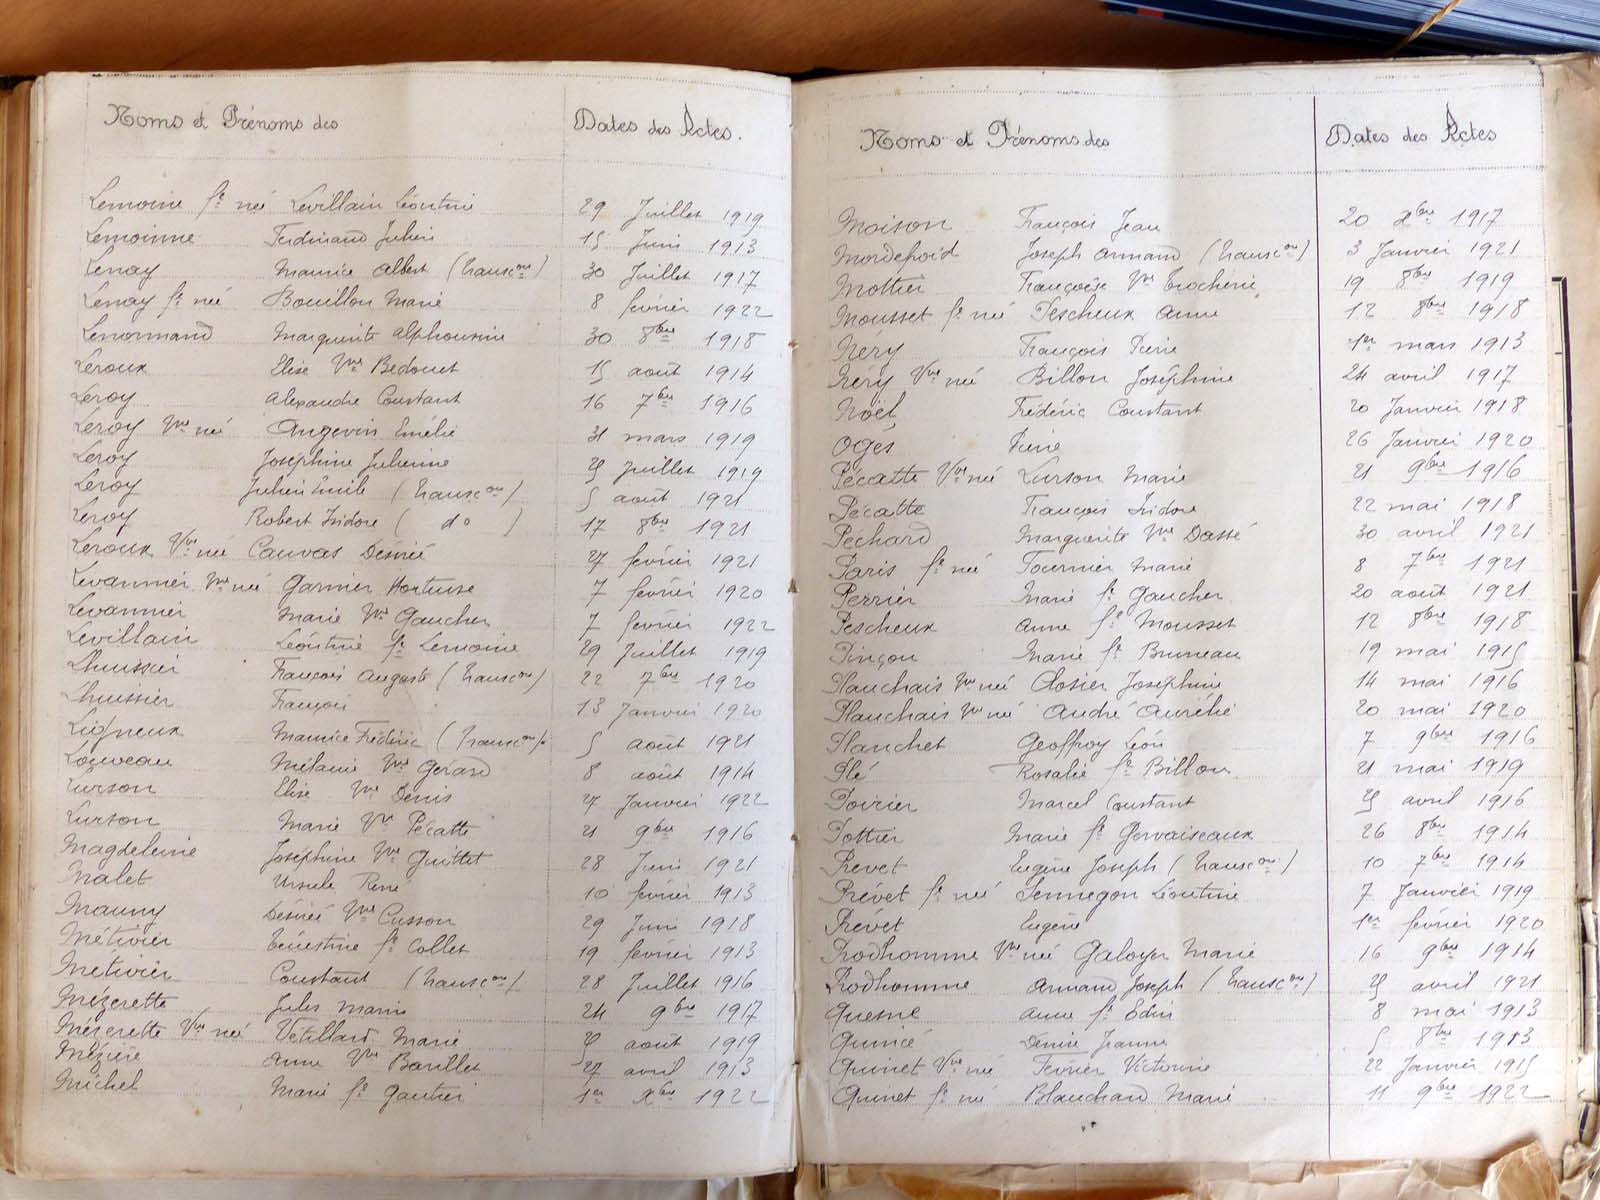 Noms et Prénoms des Dates des Actes.
Lemoine fe née Levillain Léontine 29 Juillet 1919
Lemoinne Ferdinand Julien 15 Juin 1913
Lenay Maurice Albert (transcon) 30 Juillet 1917
Lenay fe née Bouillon Marie 8 février 1922
Lenormand Marguerite Alphonsine 30 8bre 1918
Leroux Elise Vve Bedouet 15 août 1914
Leroy Alexandre Constant 16 7bre 1916
Leroy Vve née Angevin Emélie 31 mars 1919
Leroy Joséphine Julienne 25 Juillet 1919
Leroy Julien Emile (transcon) 5 août 1921
Leroy Robert Isidore ( do ) 17 8bre 1921
Leroux Vve née Cauvas Désirée 27 février 1921
Levannier Vve née Garnier Hortense 7 février 1920
Levannier Marie Vve Gaucher 7 février 1922
Levillain Léontine fe Lemoine 29 Juillet 1919
Lhuissier François Auguste (transcon) 22 7bre 1920
Lhuissier François 13 Janvier 1920
Ligneux Maurice Frédéric (transcon). 5 août 1921
Louveau Mélanie Vve Gérard 8 août 1914
Lurson Elise Vve Denis 27 Janvier 1922
Lurson Marie Vve Pécatte 21 9bre 1916
Magdeleine Joséphine Vve Guittet 28 Juin 1921
Malet Ursule René 10 février 1913
Mauny Désirée Vve Cusson 29 Juin 1918
Métivier fe Collet 19 février 1913
Métivier Constant (transcon) 28 Juillet 1916
Mézerette Jules Marin 24 9bre 1917
Mézerette Vve née Vétillard Marie 25 août 1919
Mézière Anne Vve Barillet 27 avril 1913
Michel Marie fe Gautier 1er Xbre 1922
Noms et Prénoms des Dates des Actes
Moison François Jean 20 Xbre 1917
Mordefroid Joseph Armand (transcon) 3 Janvier 1921
Mottier Françoise Vve Trocherie 19 8bre 1919
Mousset fe née Pescheux Anne 12 8bre 1918
Nery François Pierre 1er mars 1913
Néry Vve née Billon Joséphine 24 avril 1917
Noël Frédéric Constant 20 Janvier 1918
Oger Pierre 26 Janvier 1920
Pécatte Vve née Lurson Marie 21 9bre 1916
Pécatte François Isidore 22 mai 1918
Péchard Marguerite Vve Dassé 30 avril 1921
Paris fe née Fournier Marie 8 7bre 1921
Perrier Marie fe Gaucher 20 août 1921
Pescheux Anne fe Mousset 12 8bre 1918
Pinçon Marie fe Bruneau 19 mai 1915
Planchais Vve née Closier Joséphine 14 mai 1916
Planchais Vve née André Aurélie 20 mai 1920
Planchet Geoffroy Léon 7 9bre 1916
Plé Rosalie fe Billon 21 mai 1919
Poirier Marcel Constant 25 avril 1916
Pottier Marie fe Gervaiseaux 26 8bre 1914
Prevet Eugène Joseph (transcon) 10 7bre 1914
Prévet fe née Sennegon Léontine 7 Janvier 1919
Prévet Eugène 1er février 1920
Prodhomme Vve née Galoyer Marie 16 9bre 1914
Prodhomme Armand Joseph (transcon) 25 avril 1921
Quesne Anne fe Edin 8 mai 1913
Quinicé Denise Jeanne 5 8bre 1913
Quinet Vve née Février Victorine 22 Janvier 1915
Quinet fe née Blanchard Marie 11 9bre 1922